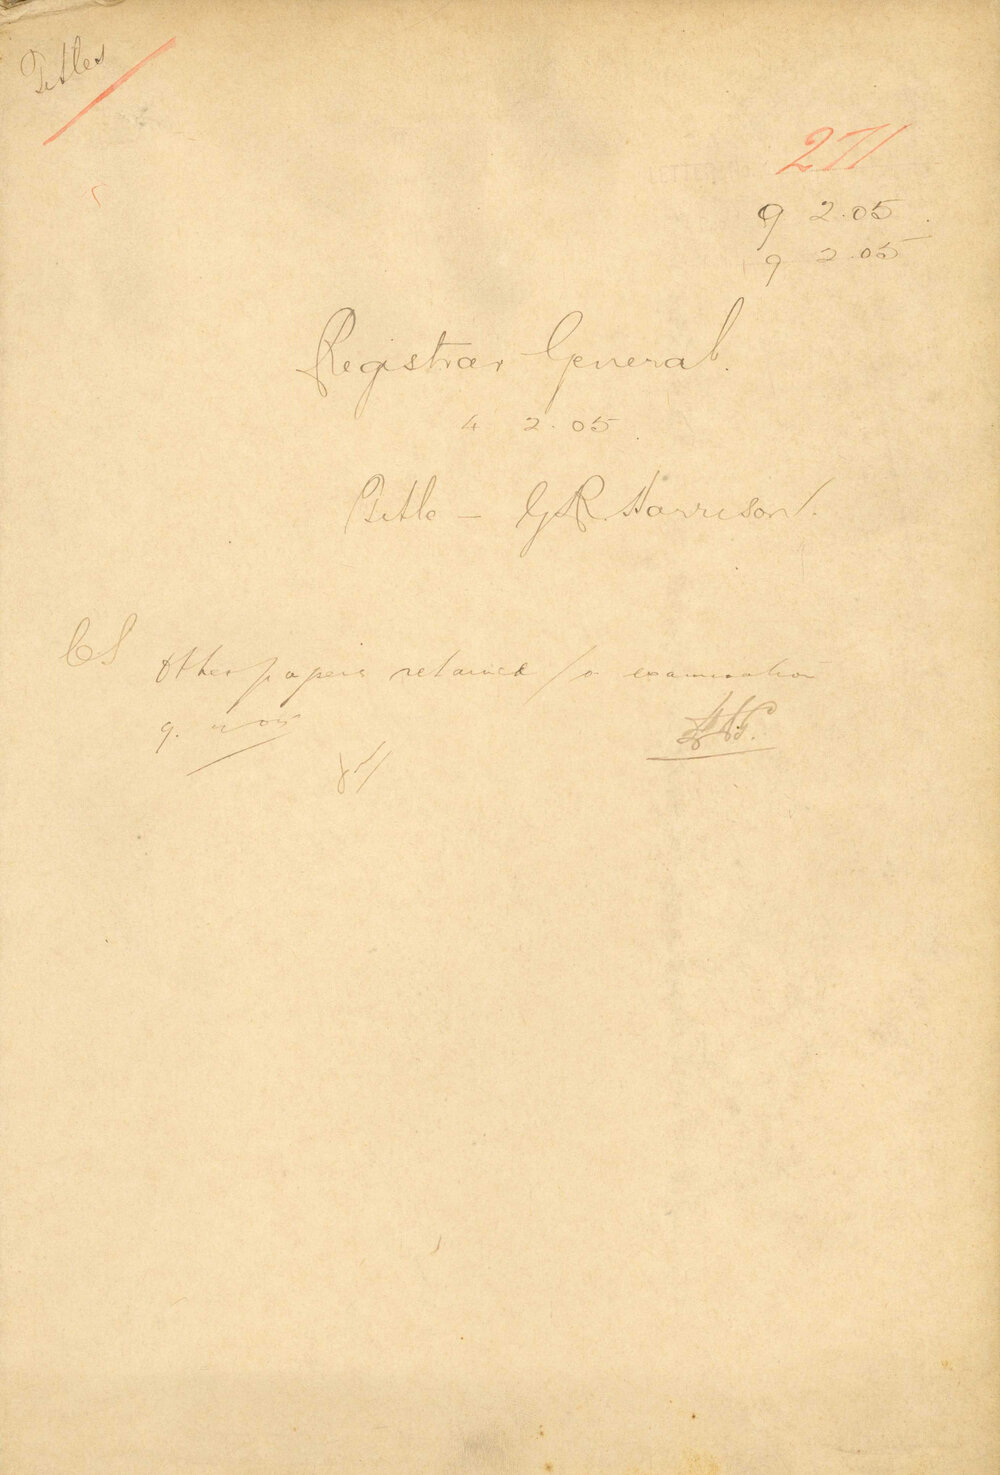 Titles
271
9 2.05
9 2.05
Registrar General.
4 2.05
Title - G.R. Harrison.
CS Other papers retained for examination
9.2.05